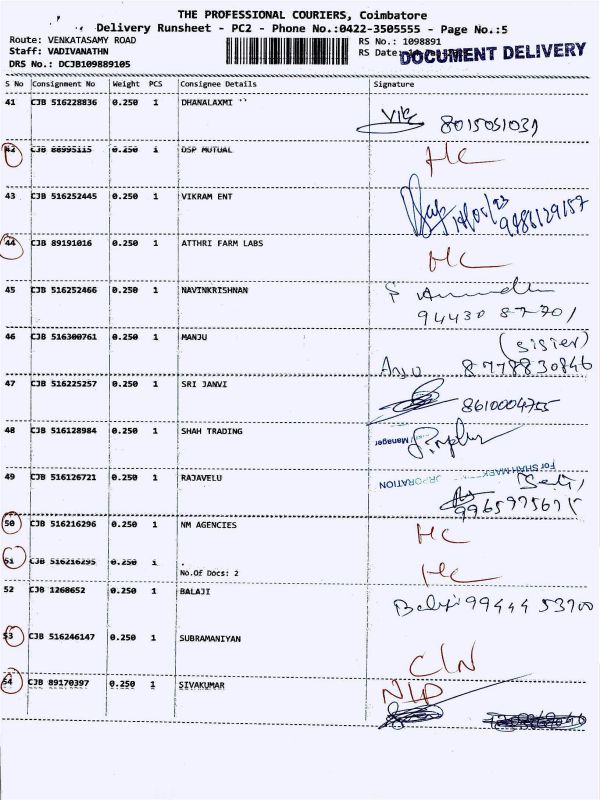 THE PROFESSIONAL COURIERS, Coimbatore
Delivery Runsheet - PC2 - Phone No.:0422-3505555 - Page No.:5
Route: VENKATASAMY ROAD
RS No.: 1098891
Staff: VADIVANATHN
RS Date:
DOCUMENT DELIVERY
DRS No.: DCJB109889105
S No Consignment No Weight PCS Consignee Details Signature
41 CJB 516228836 0.250 1 DHANALAXMI
8015051031
42 CJB 88995115 0.250 1 DSP MUTUAL HC
43 CJB 516252445 0.250 1 VIKRAM ENT
9486129157
44 CJB 89191016 0.250 1 ATTHRI FARM LABS HC
45 CJB 516252466 0.250 1 NAVINKRISHNAN
94430 87701
46 CJB 516300761 0.250 1 MANJU (sister)
Anju 8778830846
47 CJB 516225257 0.250 1 SRI JANVI
8610004755
48 CJB 516128984 0.250 1 SHAH TRADING
Manager
For SHAH
49 CJB 516126721 0.250 1 RAJAVELU
9965975675
50 CJB 516216296 0.250 1 NM AGENCIES HC
51 CJB 516216295 0.250 1 HC
No.Of Docs: 2
52 CJB 1268652 0.250 1 BALAJI
Balaji 99444 53700
53 CJB 516246147 0.250 1 SUBRAMANIYAN
CLN
54 CJB 89170397 0.250 1 SIVAKUMAR NLD